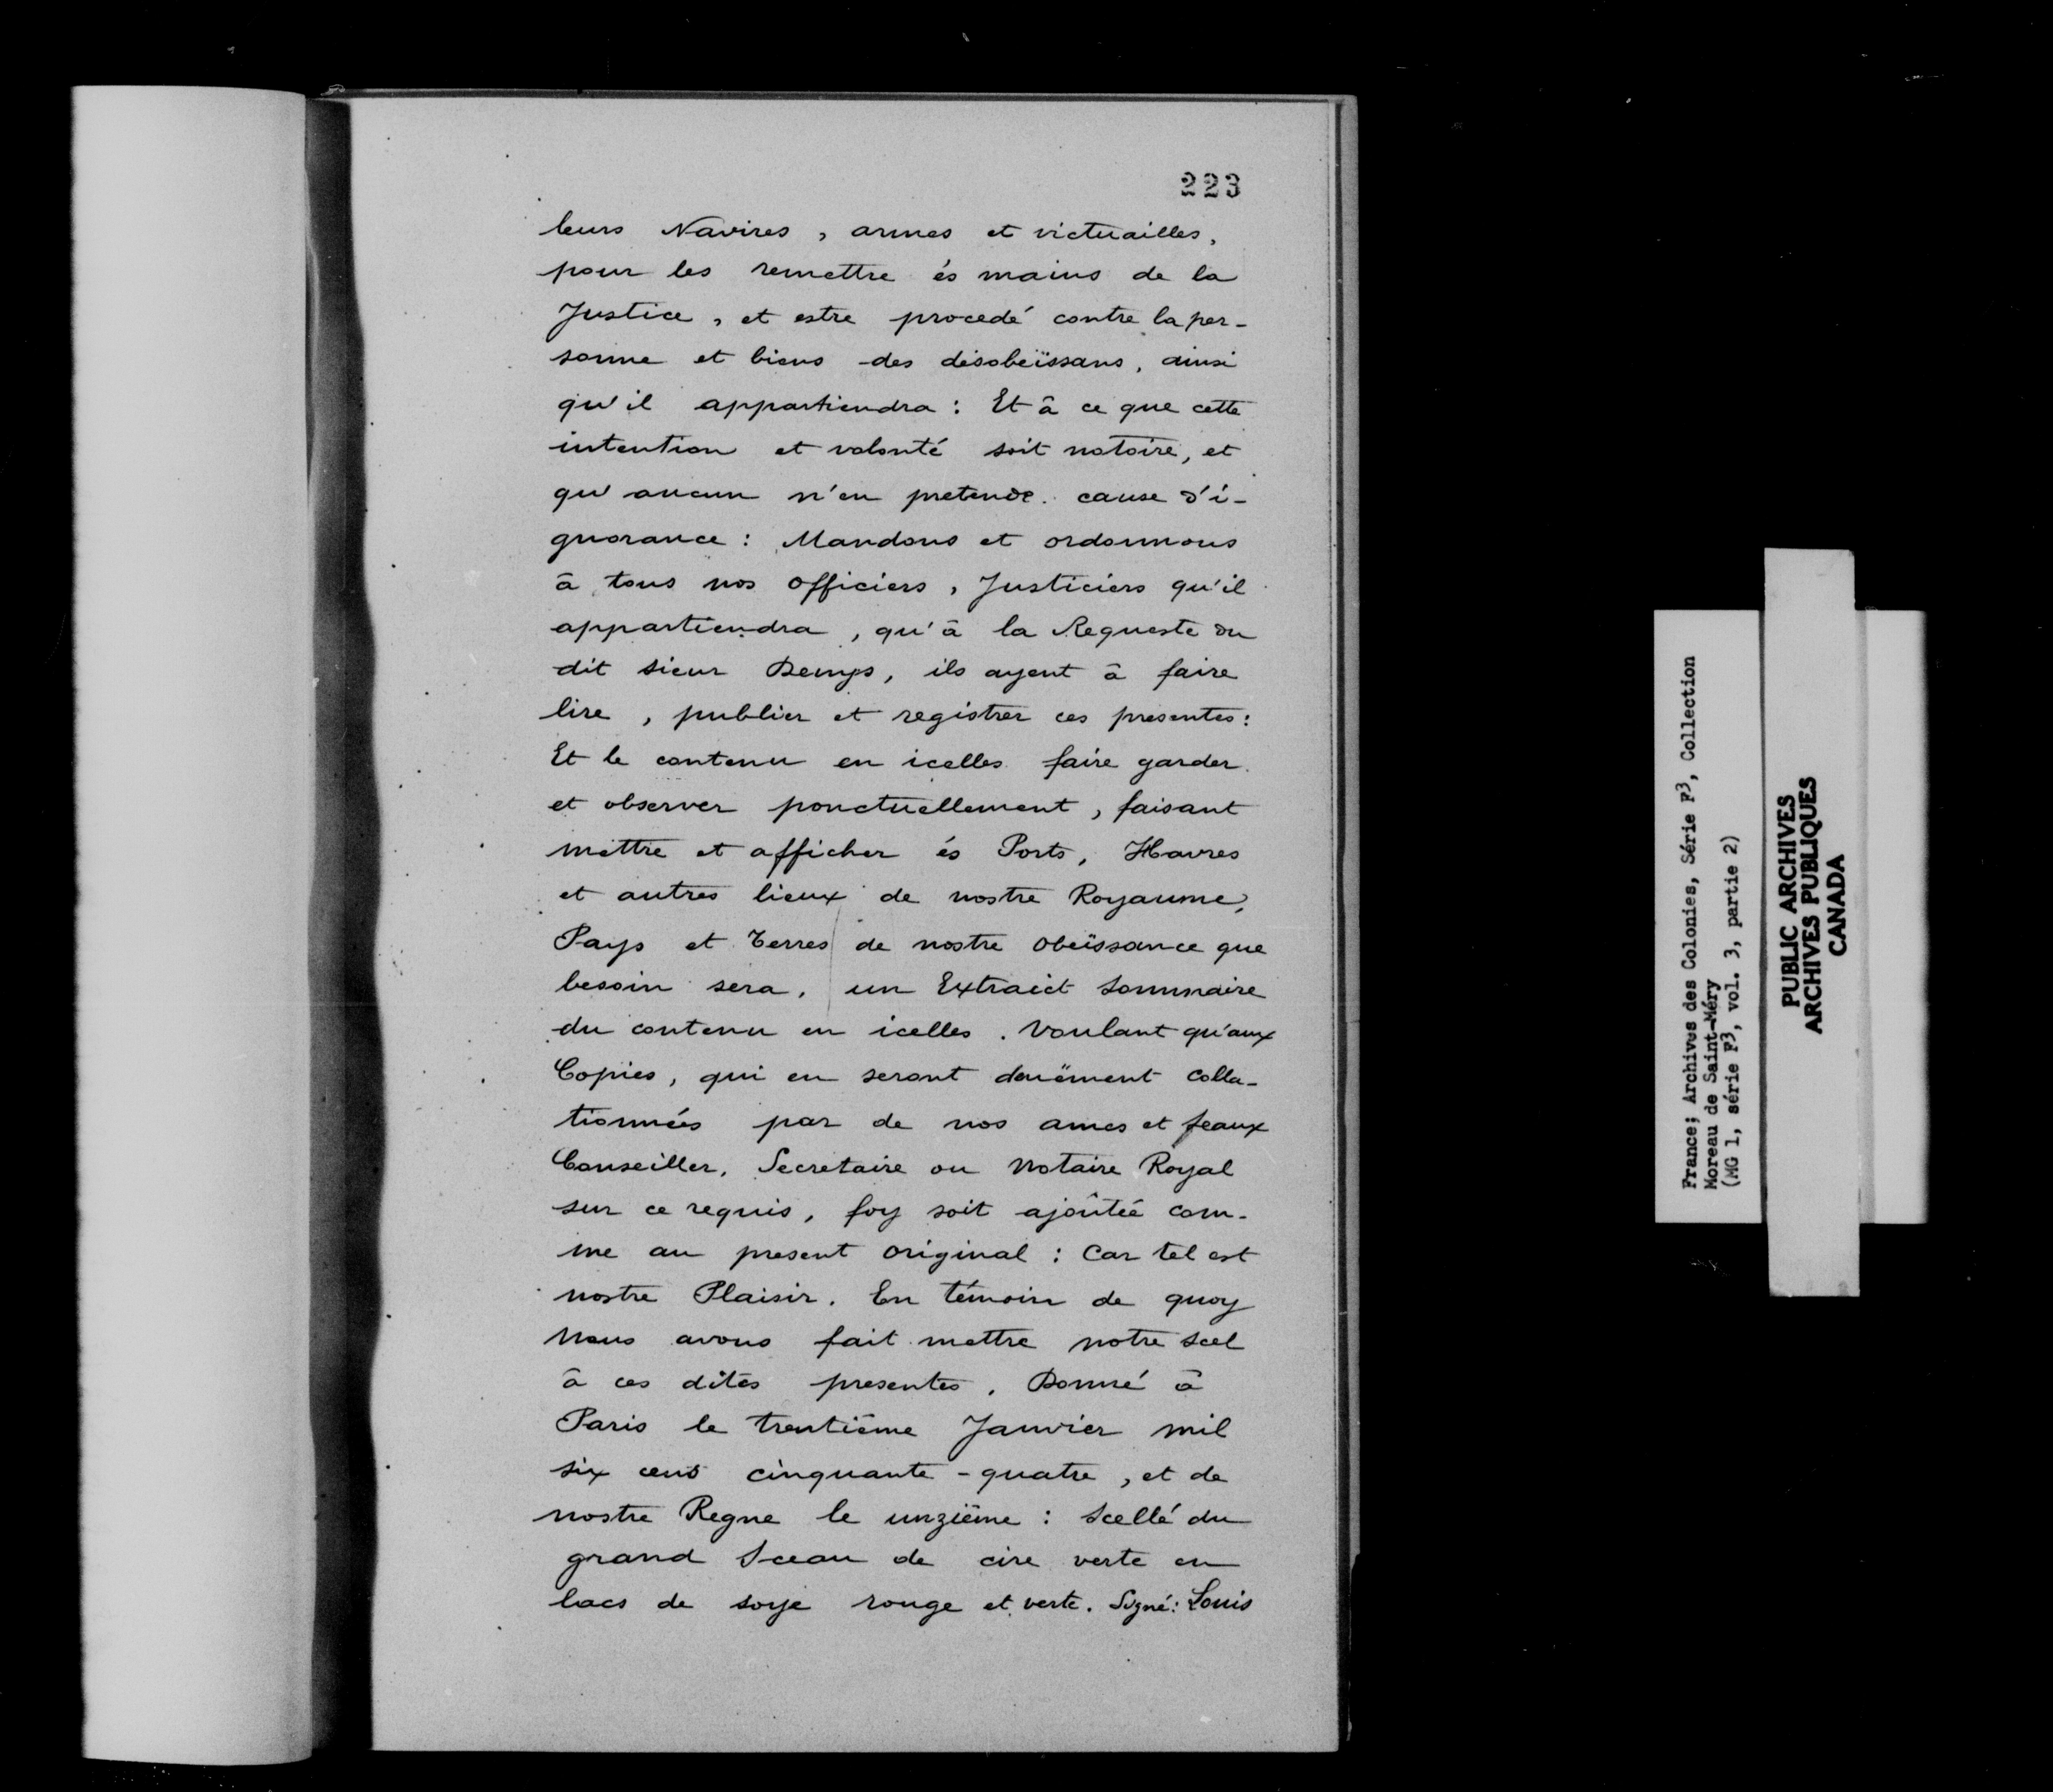 223
leurs Navires, armes et victuailles,
pour les remettre és mains de la
Justice, et estre procedé contre la per-
sonne et biens des désobeïssans, ainsi
qu'il appartiendra : Et â ce que cette
intention et volonté soit notoire, et
qu'aucun n'en pretende cause d'i-
gnorance : Mandons et ordonnons
â tous nos officiers, Justiciers qu'il
appartiendra, qu'â la Requeste du
dit sieur Denys, ils ayent â faire
lire, publier et registrer ces presentes :
Et le contenu en icelles faire garder
et observer ponctuellement, faisant
mettre et afficher és Ports, Havres
et autres lieux de nostre Royaume,
Pays et Terres de nostre obeïssance que
besoin sera, un Extraict sommaire
du contenu en icelles. Voulant qu'aux
Copies, qui en seront deuëment colla-
tionnées par de nos ames et feaux
Conseiller, Secretaire ou Notaire Royal
sur ce requis, foy soit ajoûtée com-
me au present original : Car tel est
nostre Plaisir. En témoin de quoy
Nous avons fait mettre notre scel
â ces dites presentes. Donné â
Paris le trentième Janvier mil
six cens cinquante-quatre, et de
nostre Regne le unzième : Scellé du
grand Sceau de cire verte en
lacs de soye rouge et verte. Signé : Louis
France; Archives des Colonies, Série F3, Collection
Moreau de Saint-Méry
(MG 1, série F3, vol. 3, partie 2)
PUBLIC ARCHIVES
ARCHIVES PUBLIQUES
CANADA